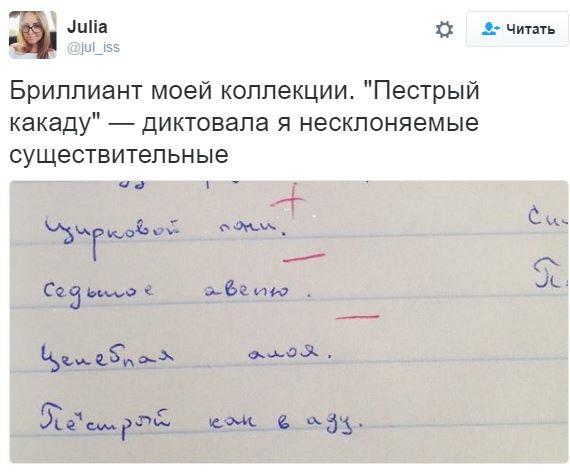 Julia
@jul_iss
Читать
Бриллиант моей коллекции. "Пестрый
какаду" — диктовала я несклоняемые
существительные
Цирковой пони.
Седьмое авеню.
Целебная алоя.
Пёстрый как в аду.